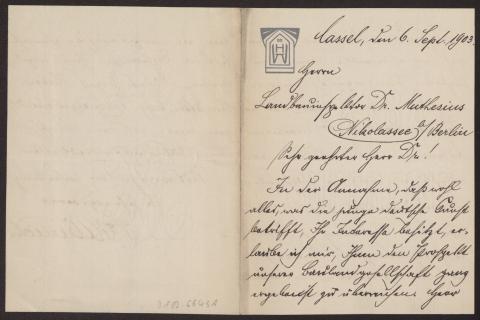 Cassel, den 6. Sept. 1903.
Herrn
Landbauinspektor Dr. Muthesius
Nikolassee a/Berlin
Sehr geehrter Herr Dr.!
In der Annahme, daß wohl
alles, was die junge deutsche Kunst
betrifft, Ihr Interesse besitzt, er-
laube ich mir, Ihnen den Prospekt
unserer Baulandgesellschaft ganz
ergebenst zu überreichen. Herr